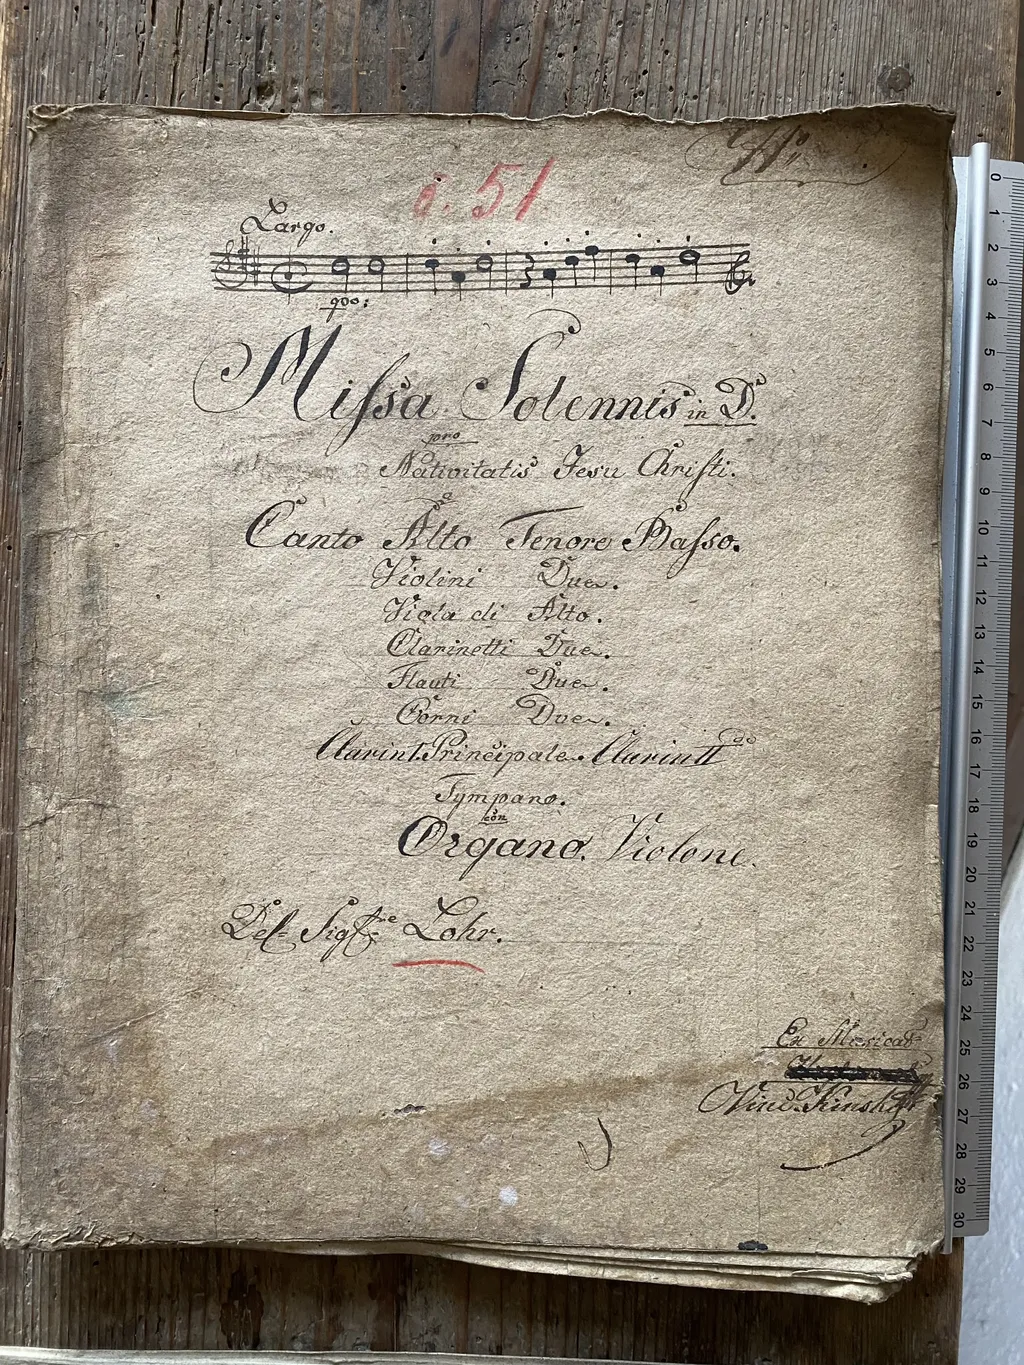 č. 51
Largo.
Missa Solennis in D.
pro
Nativitatis Jesu Christi.
Canto Alto Tenore Basso.
Violini Due.
Viola di Alto.
Clarinetti Due.
Flauti Due.
Corni Due.
Clarin 1. Principale. Clarin II
Tympano.
con
Organo. Violone.
Del Sig Lohr.
Ex Musical
Vinc. Kinsky
0
1
2
3
4
5
6
7
8
9
10
11
12
13
14
15
16
17
18
19
20
21
22
23
24
25
26
27
28
29
30